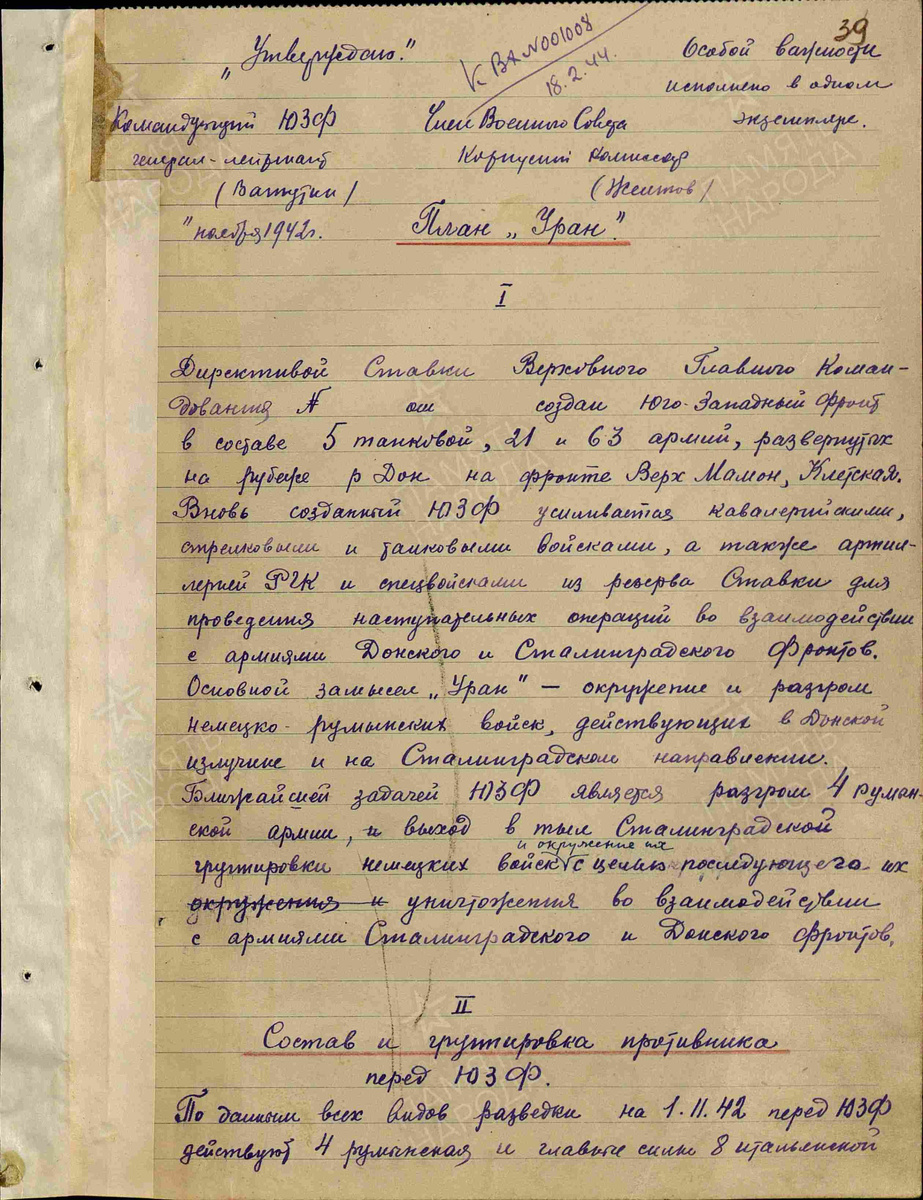 39
"Утверждаю".
К ВХ N001008
18.2.44.
Особой важности
исполнено в одном
экземпляре.
Командующий ЮЗФ
генерал-лейтенант
(Ватутин)
" ноября 1942г.
Член Военного Совета
Корпусной Комиссар
(Желтов)
План "Уран".
I
Директивой Ставки Верховного Главного Коман-
дования № от создан Юго-Западный Фронт
в составе 5 танковой, 21 и 63 армий, развернутых
на рубеже р Дон на фронте Верх Мамон, Клетская.
Вновь созданный ЮЗФ усиливается кавалерийскими,
стрелковыми и танковыми войсками, а также артил-
лерией РГК и спецвойсками из резерва Ставки для
проведения наступательных операций во взаимодействии
с армиями Донского и Сталинградского Фронтов.
Основной замысел "Уран" — окружение и разгром
немецко-румынских войск, действующих в Донской
излучине и на Сталинградском направлении.
Ближайшей задачей ЮЗФ является разгром 4 румын-
ской армии, и выход в тыл Сталинградской
и окружение их
группировки немецких войск с целью последующего их
окружения и уничтожения во взаимодействии
с армиями Сталинградского и Донского Фронтов.
II
Состав и группировка противника
перед ЮЗФ.
По данным всех видов разведки на 1.11.42 перед ЮЗФ
действуют 4 румынская и главные силы 8 итальянской
ПАМЯТЬ
НАРОДА